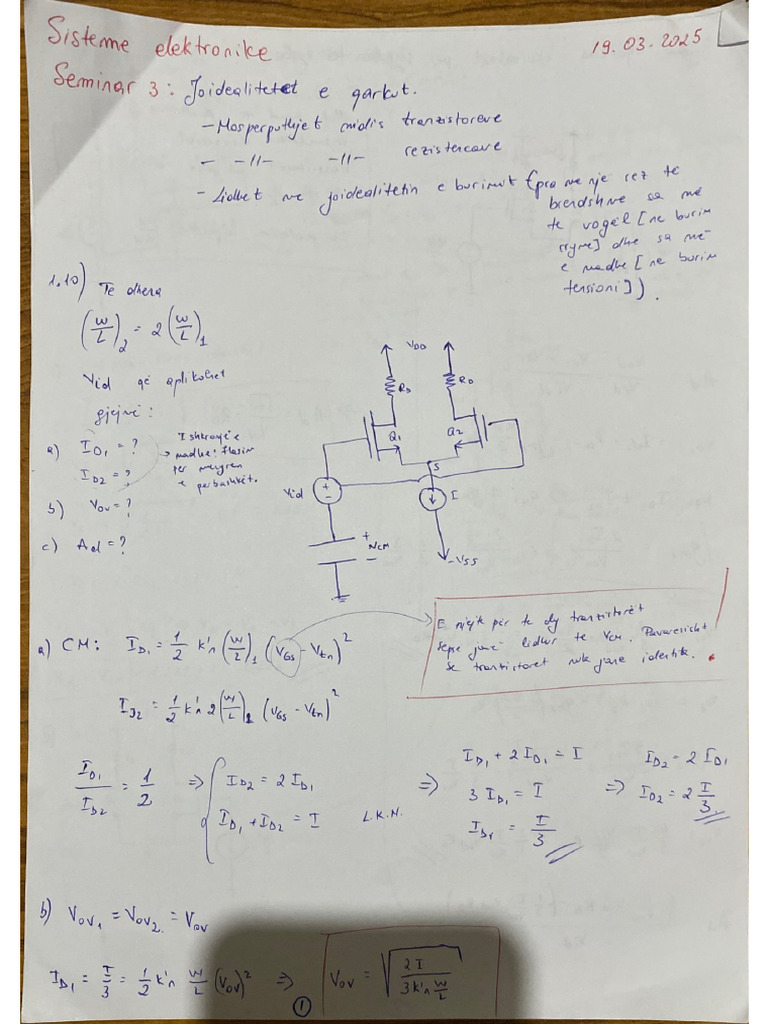 Sisteme elektronike
19.03.2025
Seminar 3: Joidealitetet e qarkut.
- Mosperputhjet midis tranzistoreve
- -//- -//- rezistencave
- Lidhet me joidealitetin e burimit (pra me nje rez te
brendshme sa me
te vogël [ne burim
rryme] dhe sa më
e madhe [ne burim
tensioni]).
1.10) Te dhena
(W/L)₂ = 2 (W/L)₁
Vid që aplikohet
gjejmë:
a) I_D1 = ?
I_D2 = ?
b) V_ov = ?
c) Ad = ?
I shkronjë e
madhe: flasim
per
e perbashkët.
V_DD
R_D
R_D
Q1
Q2
S
Vid
+
-
I
+
V_CM
-
-V_SS
a) CM: I_D1 = 1/2 k'n (W/L)₁ (V_GS - V_tn)²
E njejtë për te dy tranzistorët
sepse janë lidhur te Vcm. Pavarësisht
se tranzistoret nuk jane identik.
I_D2 = 1/2 k'n 2(W/L)₁ (V_GS - V_tn)²
I_D1/I_D2 = 1/2 => { I_D2 = 2 I_D1
I_D1 + I_D2 = I L.K.N.
=> I_D1 + 2 I_D1 = I
3 I_D1 = I
I_D1 = I/3
=> I_D2 = 2 I_D1
I_D2 = 2 I/3
b) V_ov1 = V_ov2 = V_ov
I_D1 = I/3 = 1/2 k'n W/L (V_ov)² => ① V_ov = √(2I / (3k'n W/L))